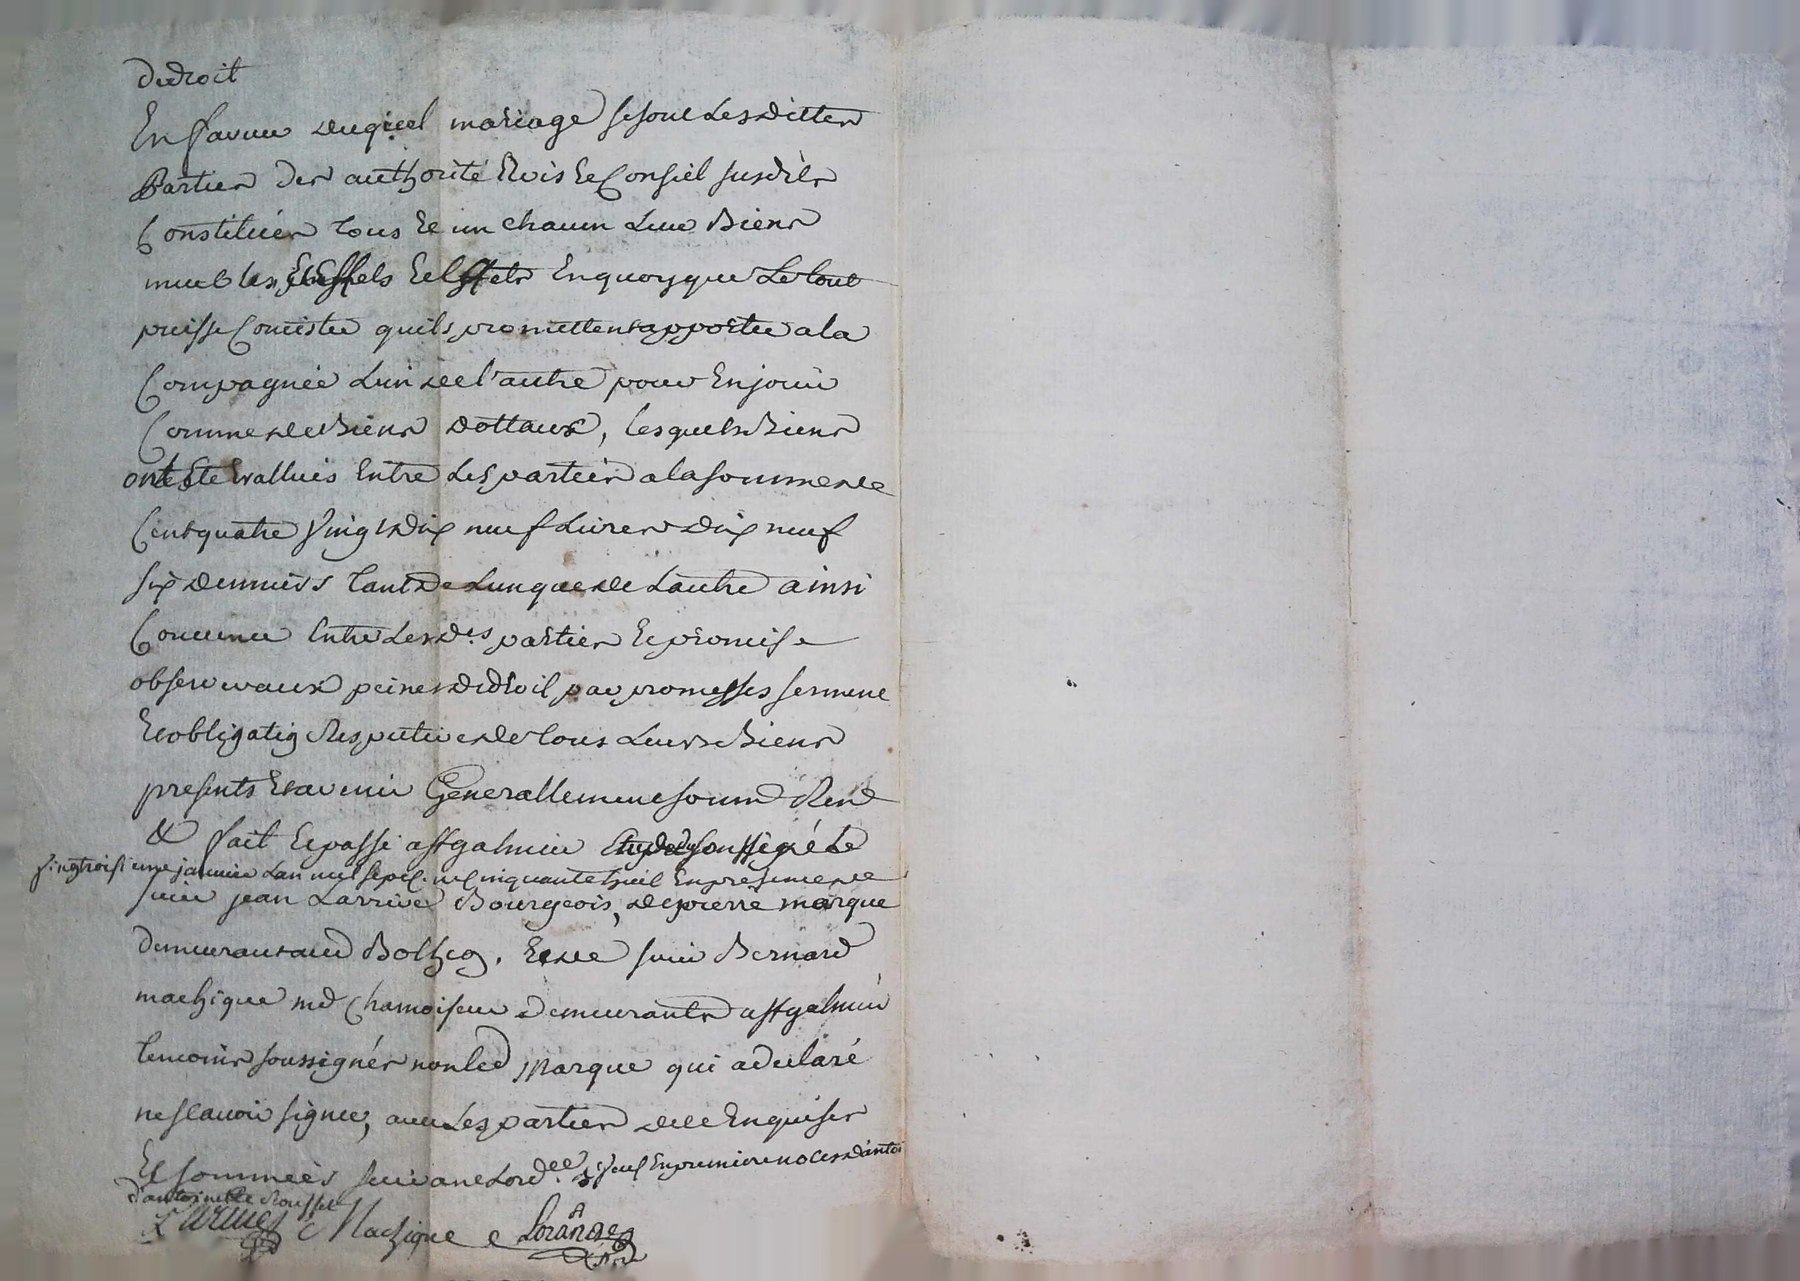 de droit
En faveur duquel mariage se sont Lesdittes
Parties des authorité avis et Conseil susdits
Constituées tous et un chacun Leurs Biens
meubles, Et Effets En quoy que Le tout
puisse Consister quils promettent apporter a la
Compagnée Lun de l'autre pour En jouir
Comme de Biens dottaux, lesquels Biens
ont Esté Evallués Entre Les parties a la somme de
Cent quatre Vingt Dix neuf Livres Dix neuf
six denniers tant de Lun que de Lautre ainsi
Convenu Entre Lesdes parties Et promis
observer aux peines de droit par promesses serment
Et obligatig Respective de tous Leurs Biens
presents Et avenir Generallement soum Ren
& fait Et passé a St galmier Etude du soussigné Le
Vingtroisieme janvier Lan mil sept cinquante huit En presence de
sieur jean Larrive Bourgeois, de pierre marque
demeurant au Botheog. Et de sieur Bernard
machique md Chamoiseur demeurants a St galmier
temoins soussignés non led Marque qui a declaré
ne sçavoir signer, avec Les parties de ce Enquises
Et sommées suivant Lord.ce Veuf En premiere noces d'antoi
d'antoinette Rousset
Larrive Machique